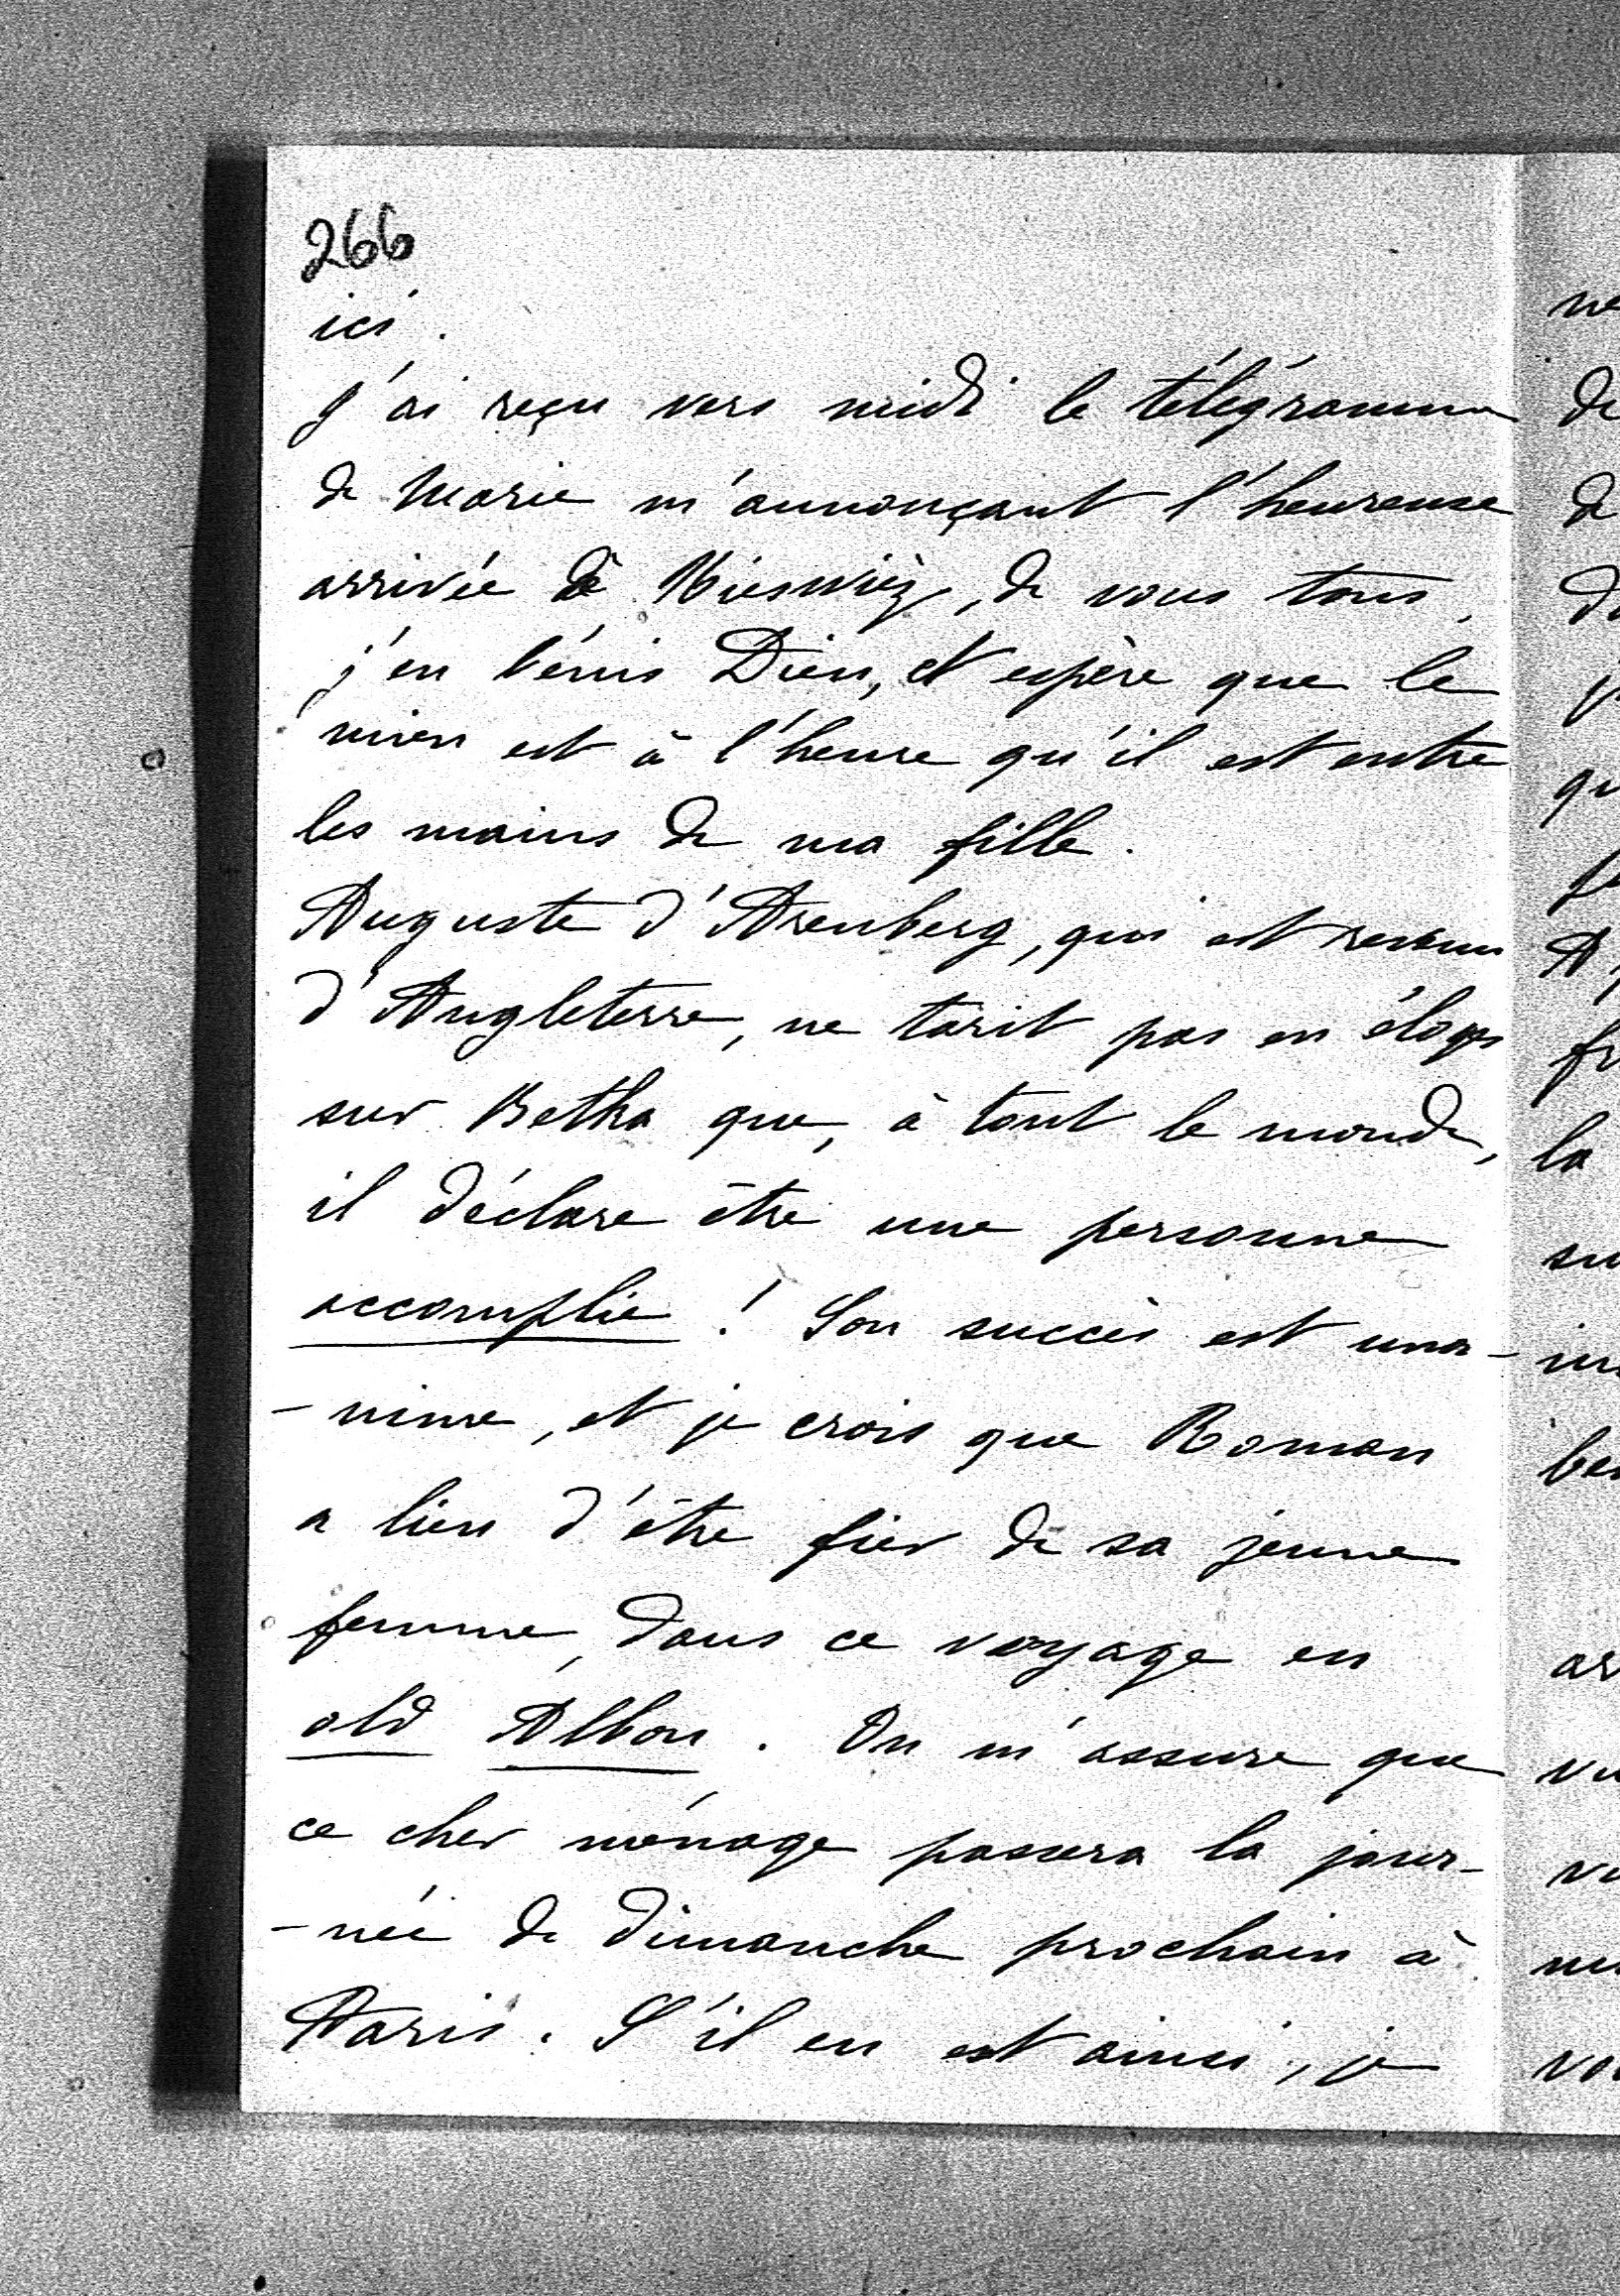 266
ici.
J'ai reçu vers midi le télégramme
de Marie m'annonçant l'heureuse
arrivée à Nieswiéz, de vous tous,
j'en bénis Dieu, et espère que le
mien est à l'heure qu'il est entre
les mains de ma fille.
Auguste d'Arenberg, qui est revenu
d'Angleterre, ne tarit pas en éloges
sur Betka que, à tout le monde,
il déclare être une personne
accomplie ! Son succès est una-
-nime, et je crois que Roman
a lieu d'être fier de sa jeune
femme, dans ce voyage en
old Albon. On m'assure que
ce cher ménage passera la jour-
-née de dimanche prochain à
Paris. S'il en est ainsi, je